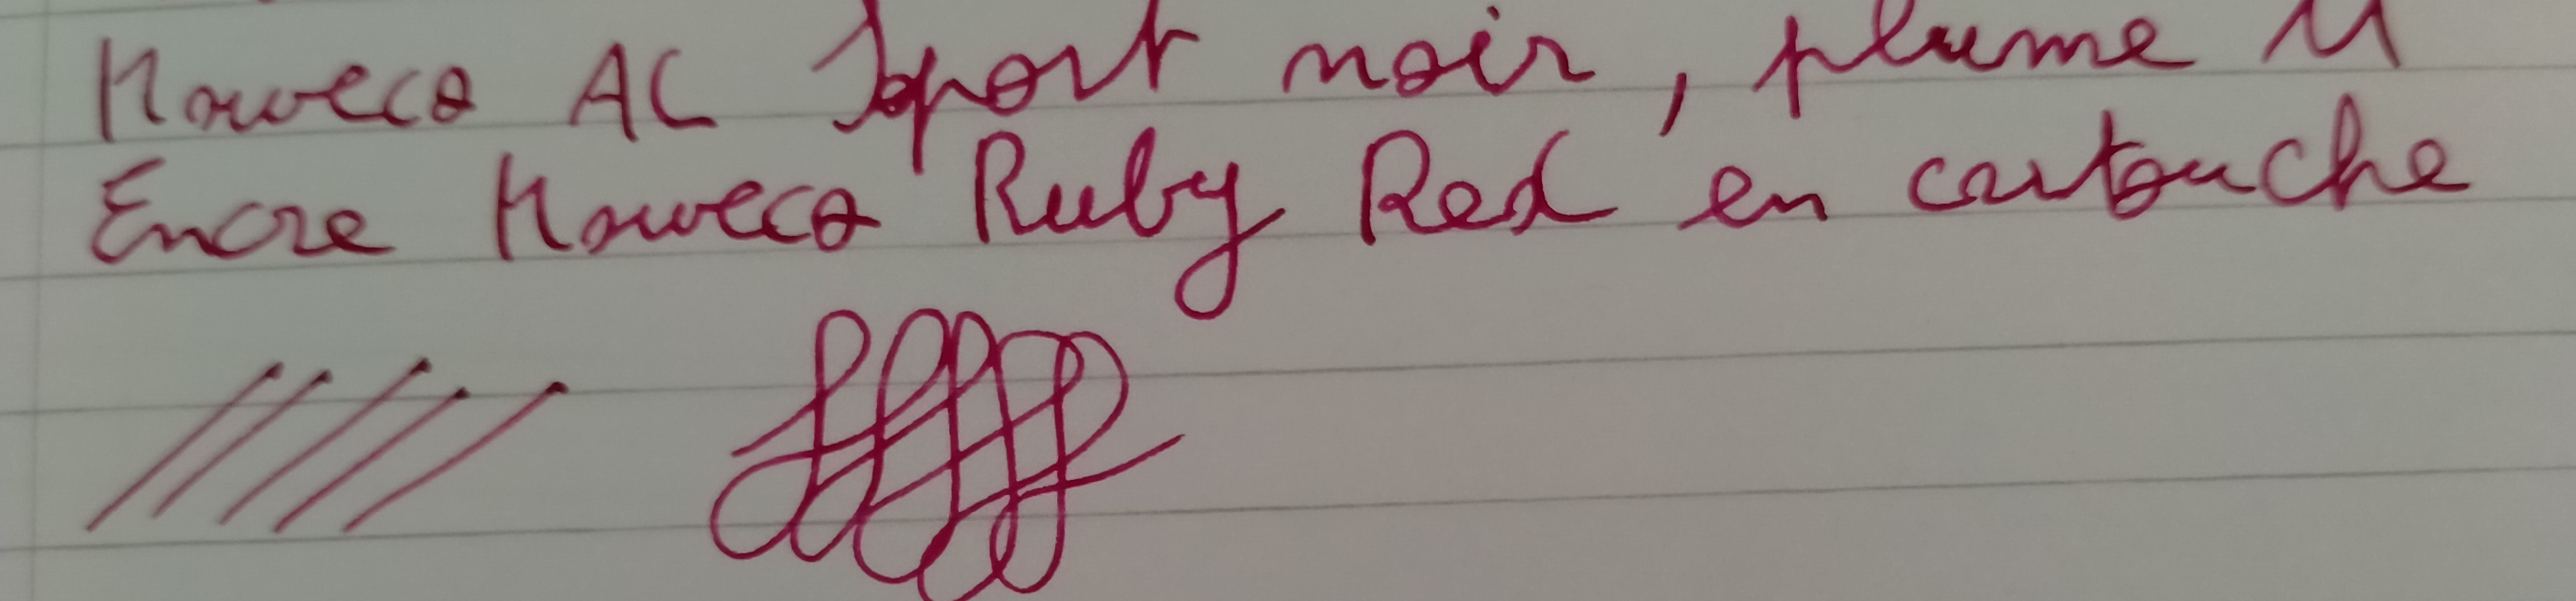 Kaweco AC Sport noir, plume M
Encre Kaweco Ruby Red en cartouche